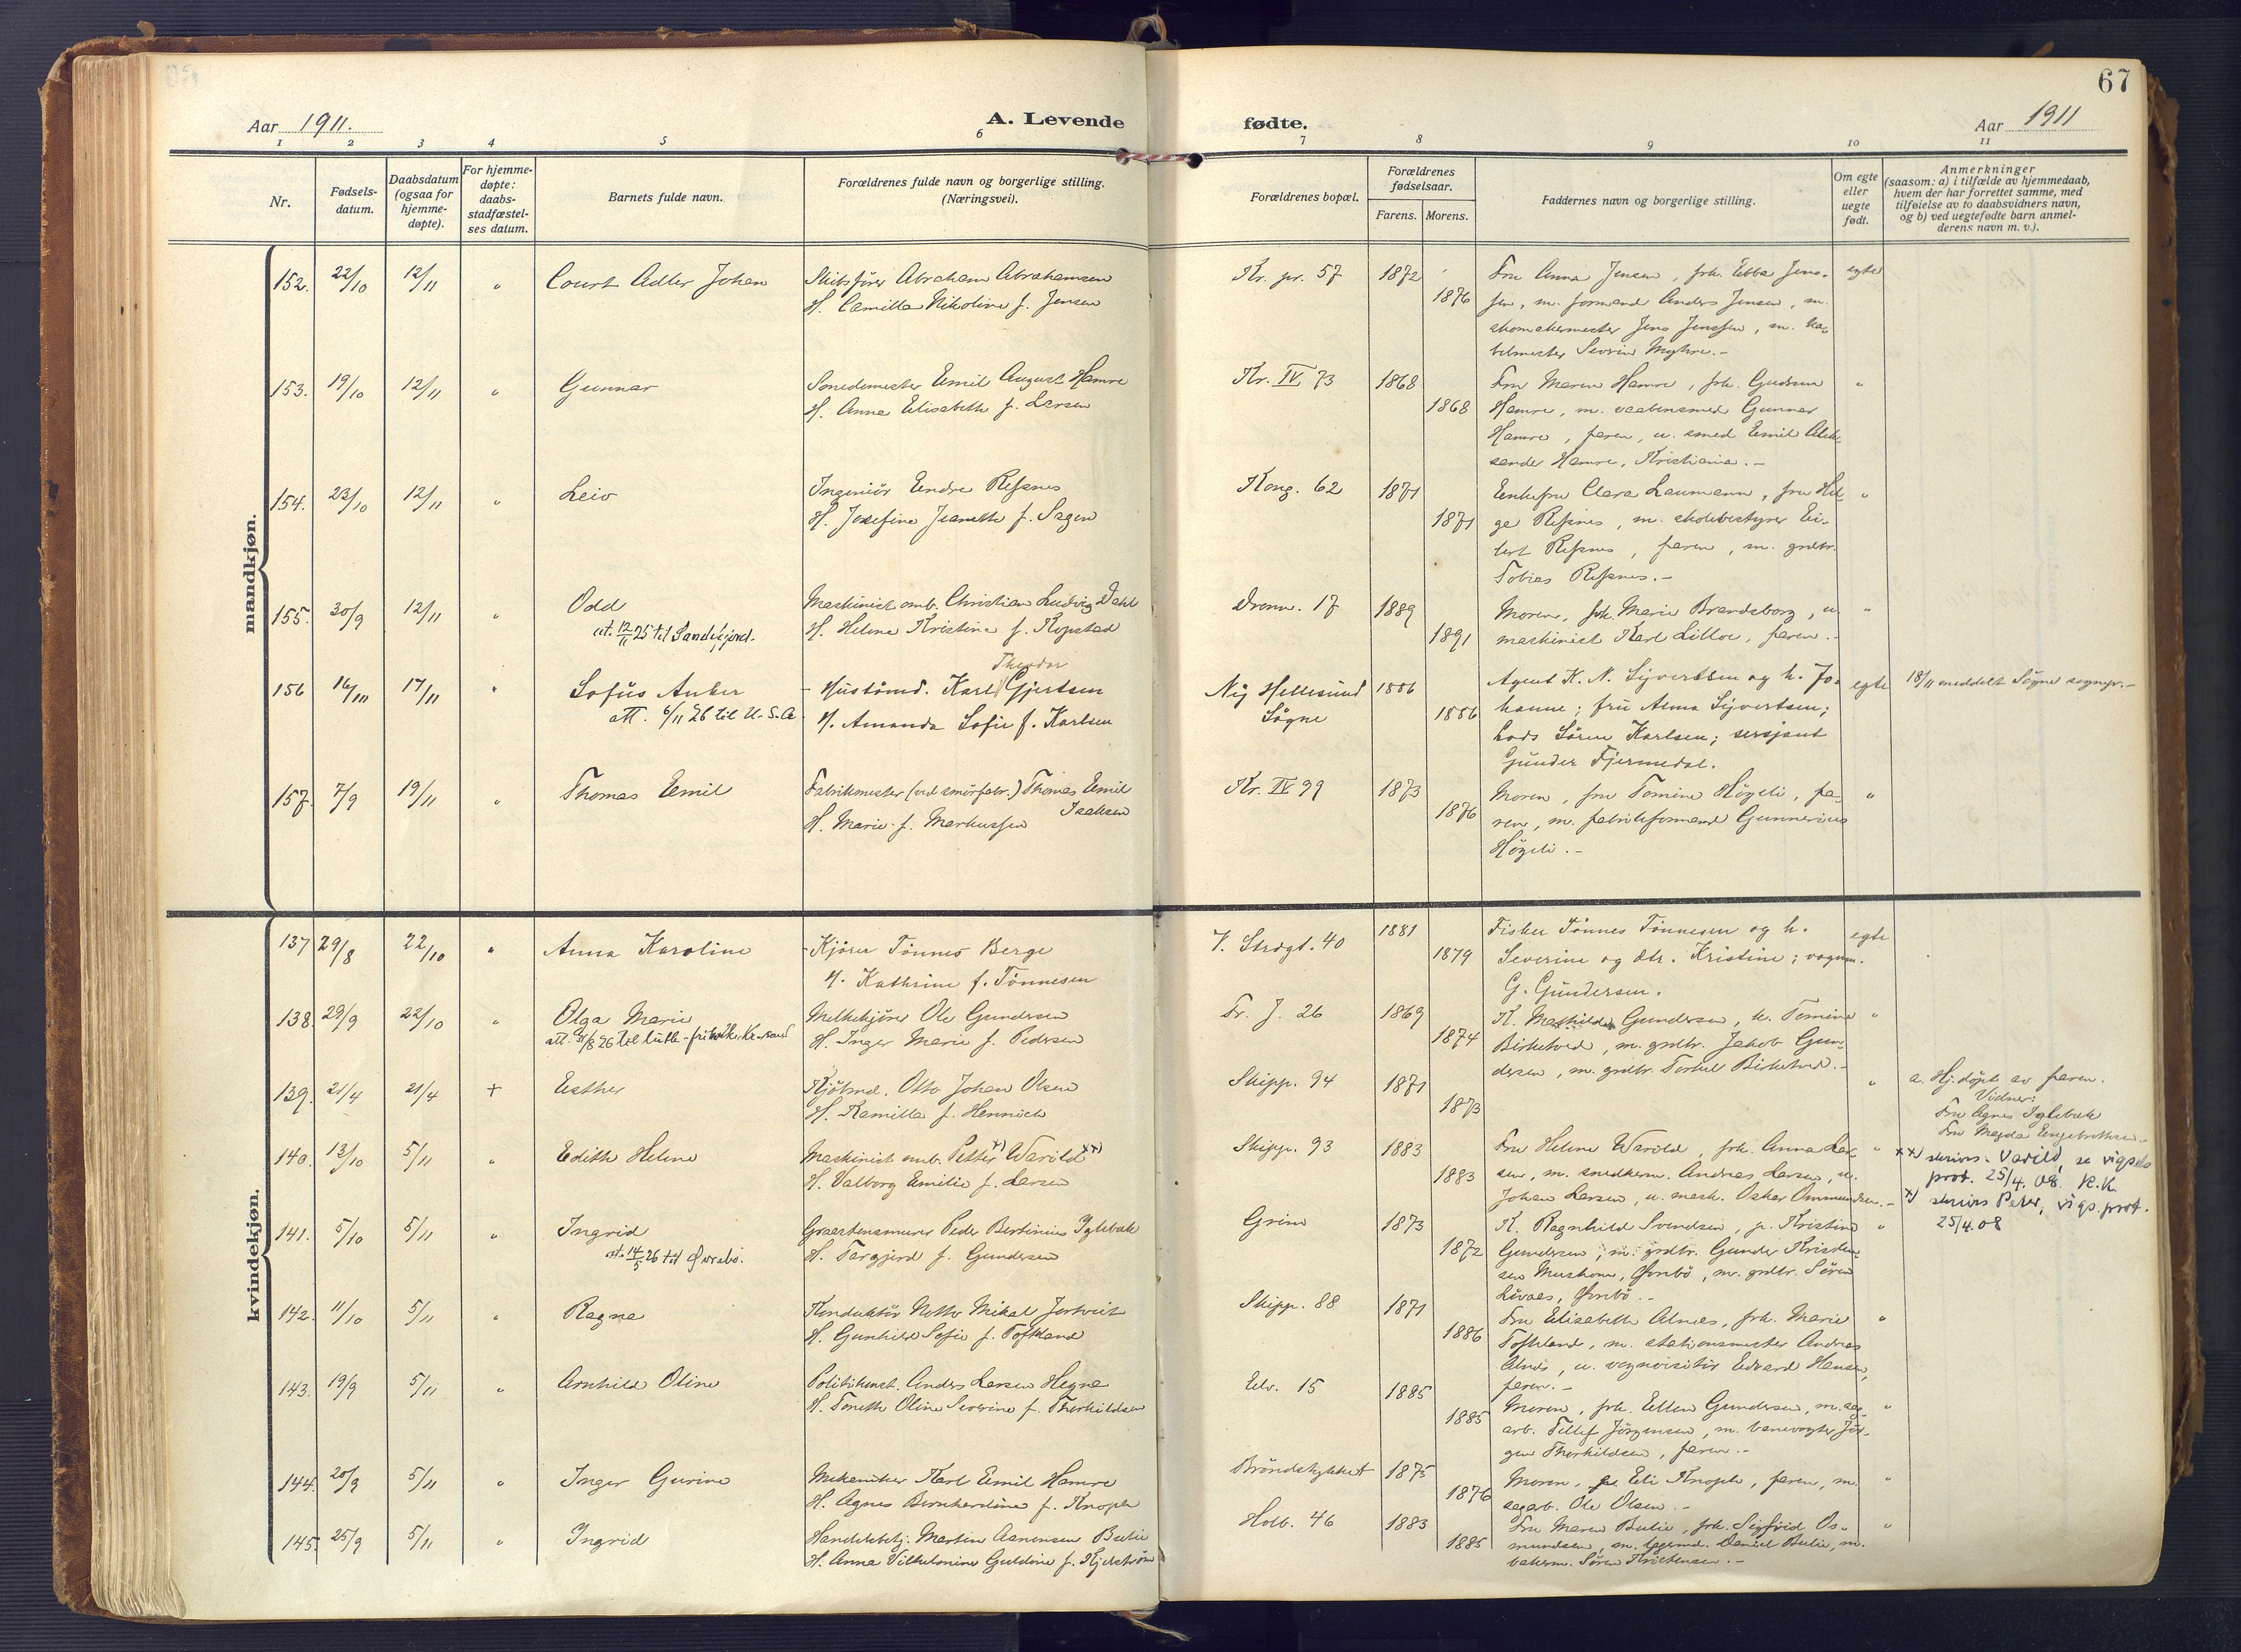 67
Aar 1911.
A. Levende
fødte.
Aar 1911
1 2 3 4 5 6 7 8 9 10 11
Nr.
Fødsels-
datum.
Daabsdatum
(ogsaa for
hjemme-
døpte).
For hjemme-
døpte:
daabs-
stadfæstel-
ses datum.
Barnets fulde navn.
Forældrenes fulde navn og borgerlige stilling.
(Næringsvei).
Forældrenes bopæl.
Forældrenes
fødselsaar.
Farens. Morens.
Faddernes navn og borgerlige stilling.
Om egte
eller
uegte
født.
Anmerkninger
(saasom: a) i tilfælde av hjemmedaab,
hvem der har forrettet samme, med
tilføielse av to daabsvidners navn,
og b) ved uegtefødte barn anmel-
derens navn m. v.).
mandkjøn.
152. 22/10 12/11 " Court Adler Johan Skibsfører Abraham Abrahamsen Kr. pr. 57 1872 Fru Anna Jensen, frk. Ebba Jens- egte
H. Camilla Nikoline f. Jensen 1876 sen, m. formand Anders Jensen, m.
skomakermester Jens Jenssen, m.
Severin Myhre.-
153. 19/10 12/11 " Gunnar Smedemester Emil August Hamre Kr. IV, 73 1868 Fru Maren Hamre, frk. Gudrun "
H. Anna Elisabeth f. Larsen 1868 Hamre, m. vaabensmed Gunnar
Hamre, faren, u. smed Emil Alek-
sander Hamre, Kristiania.-
154. 23/10 12/11 " Leiv Ingeniör Endre Refsnes Kong. 62 1871 Enkefru Clara Laumann, fru Hel- "
H. Josefine Jeanette f. Sagen 1871 ga Refsnes, m. skolebestyrer Ei-
lert Refsnes, faren, m. grdbr.
Tobias Refsnes.-
155. 30/9 12/11 " Odd Maskinist omb. Christian Ludvig Dahl Dronn. 17 1889 Moren, frk. Marie Brandsborg, u. "
at. 12/11 25 til Sandefjord. H. Helene Kristine f. Kopstad 1891 maskinist Karl Lilloe, faren.-
Theodor
156 16/10 17/11 " Sofus Anker Hüsömd. Karl Gjertsen Ny Hellesund 1886 Agent K. N. Sijvertsen og h. Jo- egte 18/11 meddelt Sögne sognepr.-
att. 6/11 26 til U.S.A. H. Amanda Sofie f. Karlsen Sögne 1886 hanne; frü Anna Sijvertsen;
lods Sören Karlsen; sersjant
Günder Fjermedal.
157. 7/9 19/11 " Thomas Emil Fabrikmester (ved smörfabr.) Thomas Emil Kr. IV 99 1873 Moren, fru Tomine Högeli, fa- "
Isaksen
H. Marie f. Markussen 1876 ren, m. fabrikformand Gunnerius
Högeli.-
kvindekjøn.
137 29/8 22/10 " Anna Karoline Kjörer Tönnes Berge V. Strdgt. 40 1881 Fisker Tönnes Tönnesen og h. egte
H. Kathrine f. Tönnesen 1879 Severine og dtr. Kristine; vognm.
G. Gündersen.
138. 29/9 22/10 " Olga Marie Melkekjörer Ole Gundersen Fr. J. 26 1869 K. Mathilde Gundersen, k. Tomine "
att. 31/8 26 til luth. frikirke, Kr.sand H. Inger Marie f. Pedersen 1874 Birketved, m. grdbr. Jakob Gun-
dersen, m. grdbr. Torkel Birketved.-
139. 21/4 21/4 + Esther Kjöbmd. Otto Johan Olsen Skipp. 94 1871 " a. Hj.döpt av faren.
H. Kamilla f. Hennich 1873 Vidner:
Fru Agnes Iglebæk
Fru Magda Engebrethsen.-
140. 13/10 5/11 " Edith Helene Maskinist omb. Petter x) Warild xx) Skipp. 93 1883 Fru Helene Warild, frk. Anna Lar- " xx) skrives Varild, se vigsels
H. Valborg Emilie f. Larsen 1883 sen, m. snedkerm. Andreas Larsen, u. prot. 25/4. 08. K.K.
Johan Larsen, u. mask. Oskar Ommundsen.- x) skrives Peter, vigs.prot.
25/4.08
141. 5/10 5/11 " Ingrid Graastensmurer Peder Bertinius Iglebæk Grim 1873 K. Ragnhild Svendsen, p. Kristine "
at. 14/5 26 til Øvrebö. H. Targjerd f. Gundersen 1872 Gundersen, m. grdbr. Gunder Kristen-
sen Muskom, Øvrebö, m. grdbr. Sören
Livaas, Øvrebö.-
142. 11/10 5/11 " Ragna Konduktör Notto Mikal Jortveit Skipp. 88 1871 Fru Elisabeth Alnes, frk. Marie "
H. Gunhild Sofie f. Toftland 1886 Toftland, m. stationsmester Andreas
Alnes, u. vognvisitör Edvard Hansen,
faren.-
143. 19/9 5/11 " Arnhild Oline Politikonst. Anders Larsen Hegna Elv. 15 1885 Moren, frk. Ellen Gundersen, m. sag- "
H. Tonette Oline Severine f. Thorkildsen 1885 arb. Tellef Jörgensen, m. banevogter Jör-
gen Thorkildsen, faren.-
144. 20/9 5/11 " Inger Gurine Mekaniker Karl Emil Hamre Bröndstykket 1875 Moren, Eli Knoph, faren, m. "
H. Agnes Bernhardine f. Knoph 1876 sagarb. Ole Olsen.-
145. 25/9 5/11 " Ingrid Handelsbetj. Martin Aanensen Bulie Holb. 46 1883 Fru Maren Bulie, frk. Sigfrid Os- "
H. Anna Vilhelmine Guldine f. Kjelström 1885 mundsen, m. byggmd. Daniel Bulie, m.
bakerm. Sören Kristensen.-